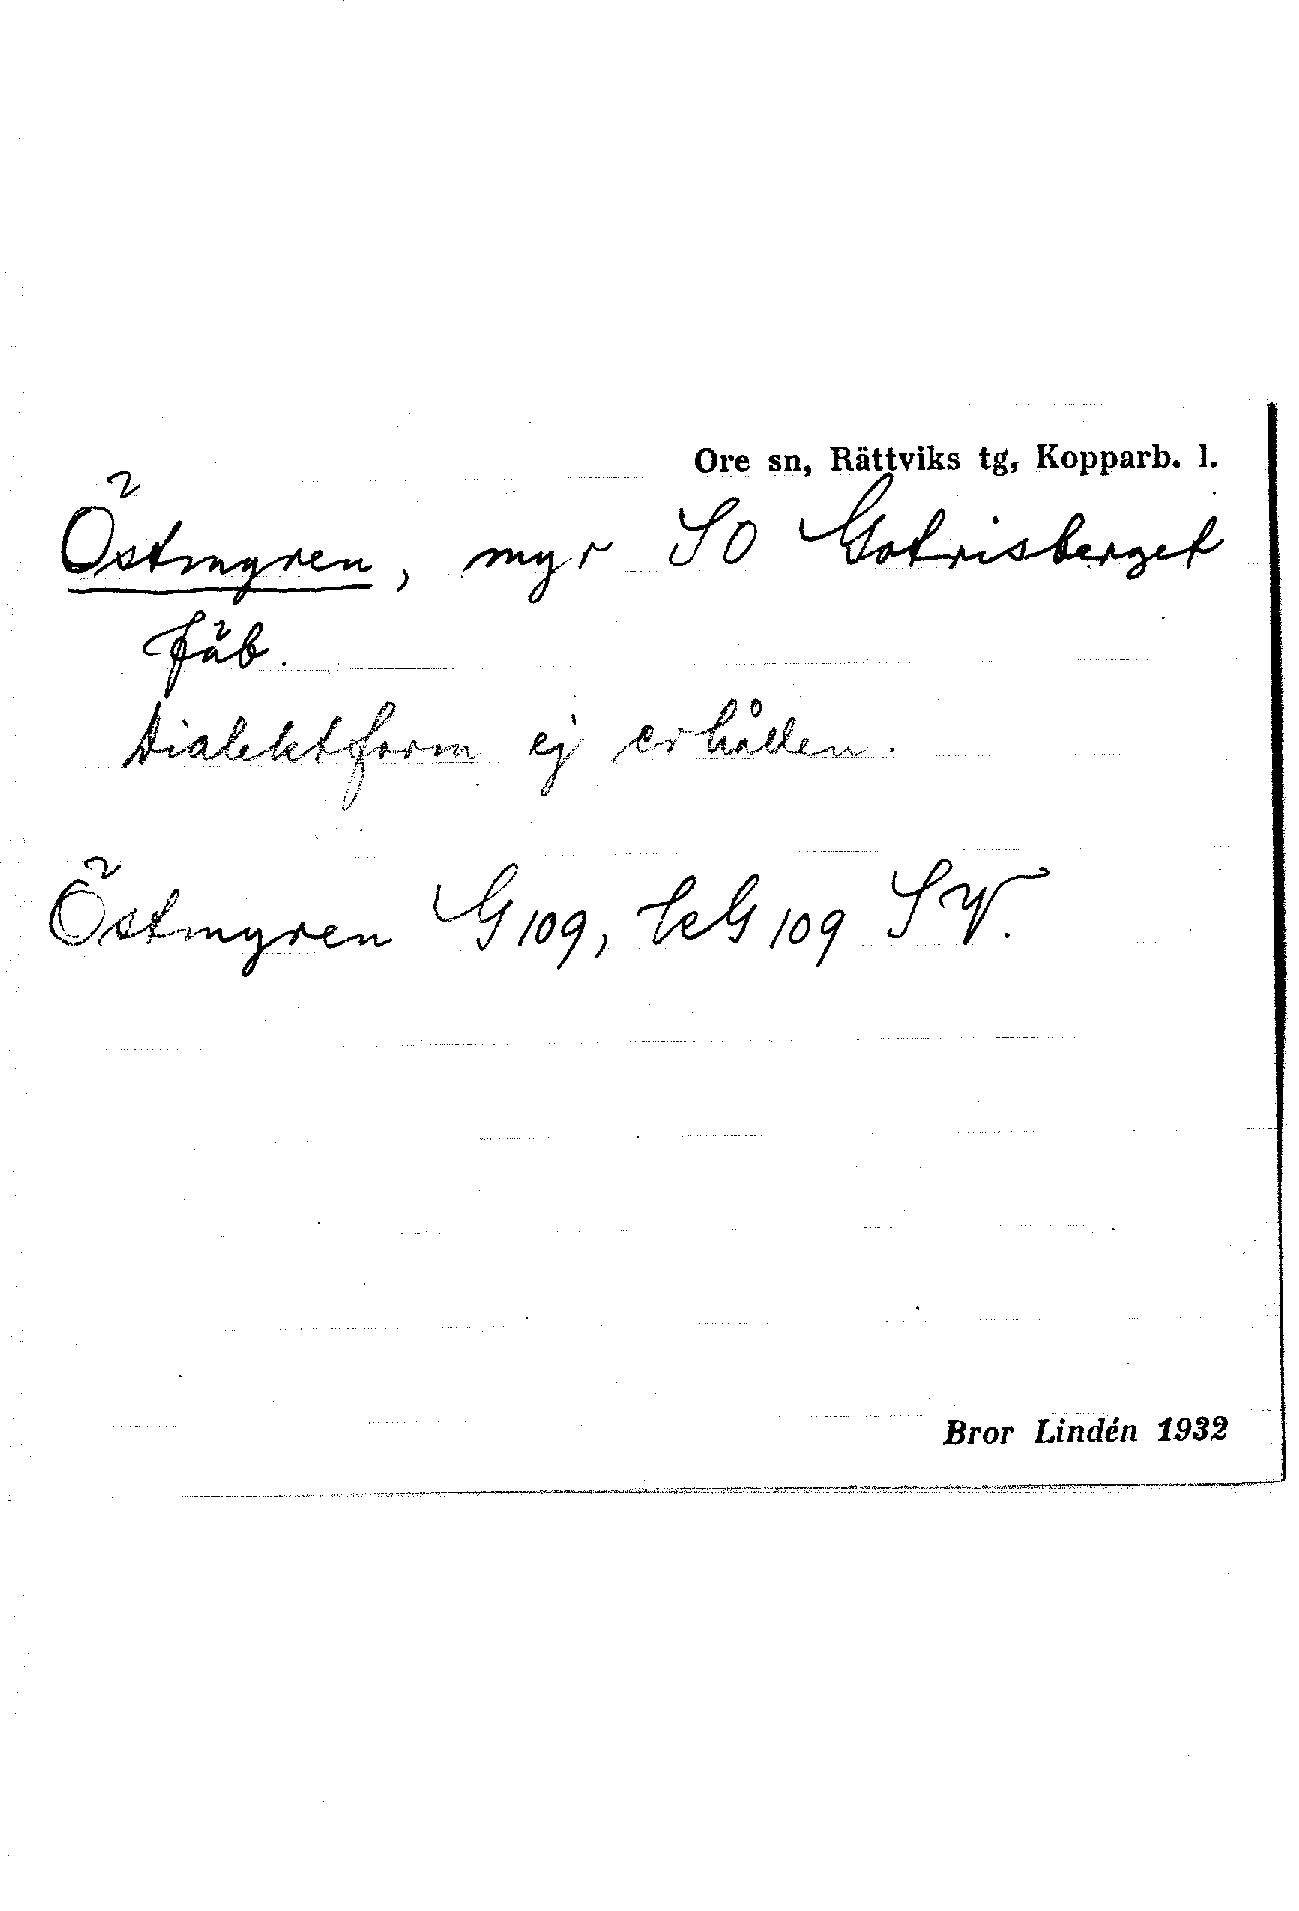 Ore sn, Rättviks tg, Kopparb. l.
Östmyren, myr SO Gotrisberget
fäb.
Dialektform ej erhållen.
Östmyren G 109, UG 109 SV.
Bror Lindén 1932